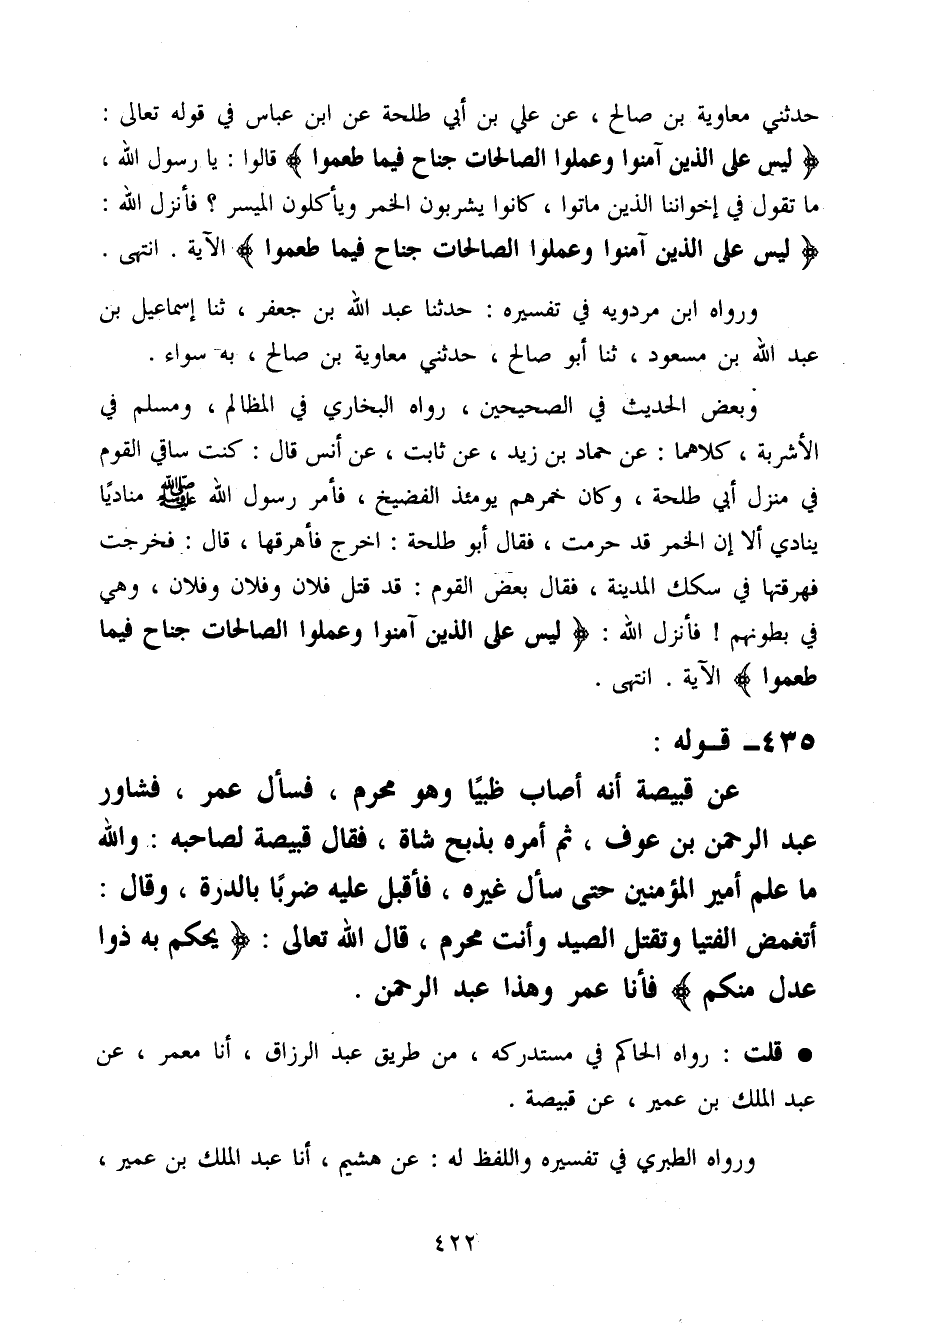 حدثني معاوية بن صالح ، عن علي بن أبي طلحة عن ابن عباس في قوله تعالى :
﴿ ليس على الذين آمنوا وعملوا الصالحات جناح فيما طعموا ﴾ قالوا : يا رسول الله ،
ما تقول في إخواننا الذين ماتوا ، كانوا يشربون الخمر ويأكلون الميسر ؟ فأنزل الله :
﴿ ليس على الذين آمنوا وعملوا الصالحات جناح فيما طعموا ﴾ الآية . انتهى .
ورواه ابن مردويه في تفسيره : حدثنا عبد الله بن جعفر ، ثنا إسماعيل بن
عبد الله بن مسعود ، ثنا أبو صالح ، حدثني معاوية بن صالح ، به سواء .
وبعض الحديث في الصحيحين ، رواه البخاري في المظالم ، ومسلم في
الأشربة ، كلاهما : عن حماد بن زيد ، عن ثابت ، عن أنس قال : كنت ساقي القوم
في منزل أبي طلحة ، وكان خمرهم يومئذ الفضيخ ، فأمر رسول الله ﷺ مناديًا
ينادي ألا إن الخمر قد حرمت ، فقال أبو طلحة : اخرج فأهرقها ، قال : فخرجت
فهرقتها في سكك المدينة ، فقال بعض القوم : قد قتل فلان وفلان وفلان ، وهي
في بطونهم ! فأنزل الله : ﴿ ليس على الذين آمنوا وعملوا الصالحات جناح فيما
طعموا ﴾ الآية . انتهى .
٤٣٥ـ قـوله :
عن قبيصة أنه أصاب ظبيًا وهو محرم ، فسأل عمر ، فشاور
عبد الرحمن بن عوف ، ثم أمره بذبح شاة ، فقال قبيصة لصاحبه : والله
ما علم أمير المؤمنين حتى سأل غيره ، فأقبل عليه ضربًا بالدرة ، وقال :
أتغمض الفتيا وتقتل الصيد وأنت محرم ، قال الله تعالى : ﴿ يحكم به ذوا
عدل منكم ﴾ فأنا عمر وهذا عبد الرحمن .
● قلت : رواه الحاكم في مستدركه ، من طريق عبد الرزاق ، أنا معمر ، عن
عبد الملك بن عمير ، عن قبيصة .
ورواه الطبري في تفسيره واللفظ له : عن هشيم ، أنا عبد الملك بن عمير ،
٤٢٢